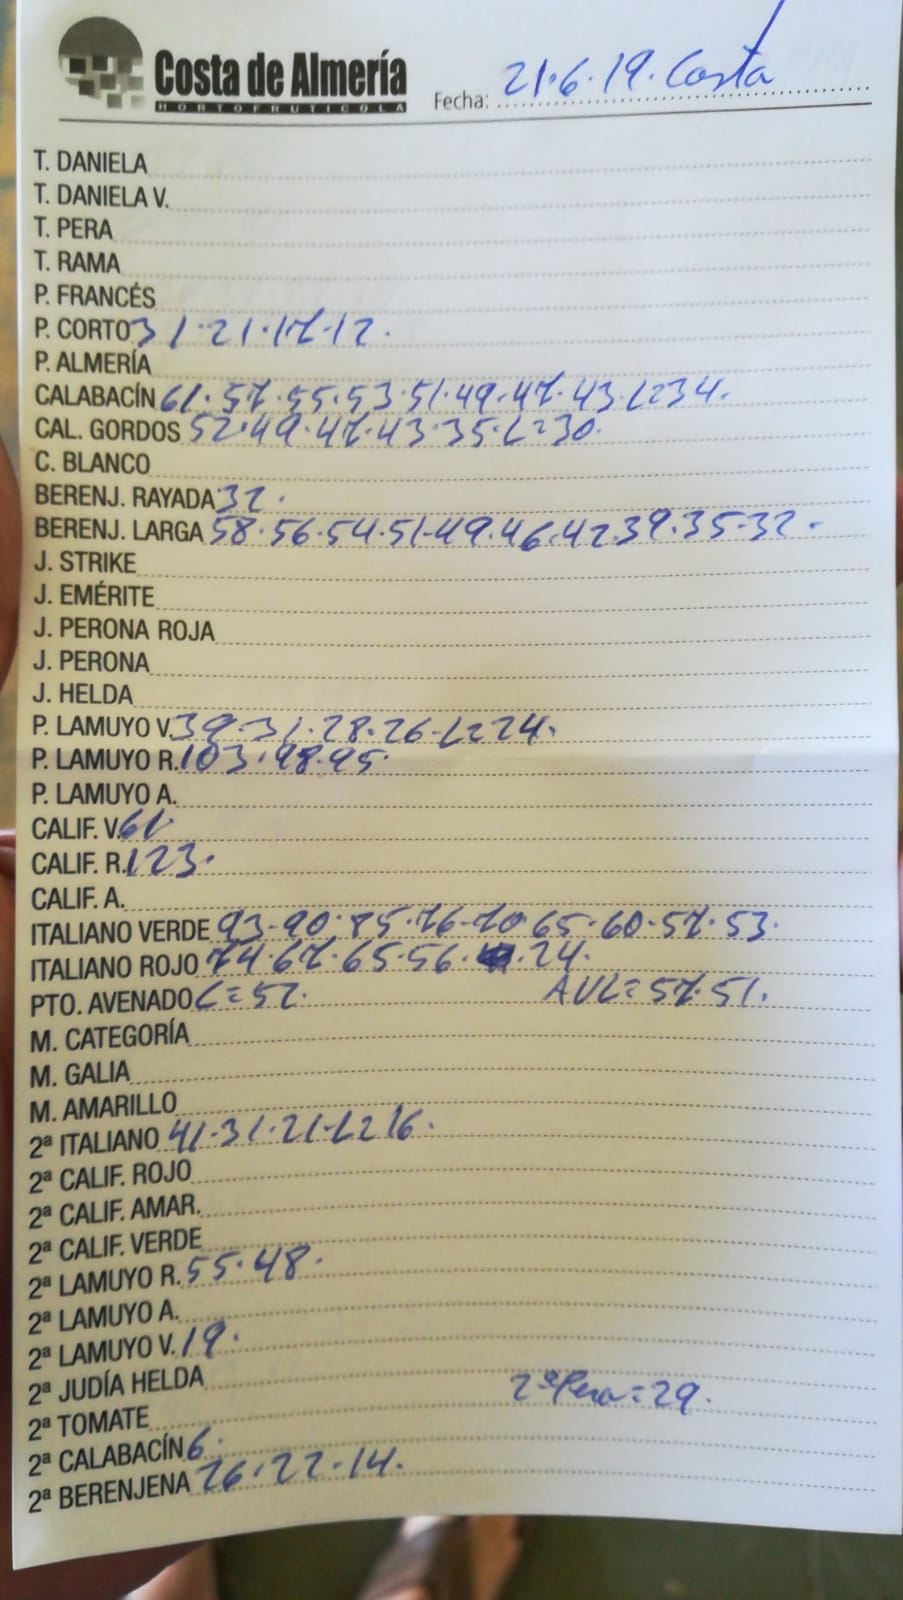 Costa de Almería
HORTOFRUTICOLA
Fecha: 21.6.19. Costa
T. DANIELA
T. DANIELA V.
T. PERA
T. RAMA
P. FRANCÉS
P. CORTO 31.21.17.12.
P. ALMERÍA
CALABACÍN 61.57.55.53.51.49.47.43.L=34.
CAL. GORDOS 52.49.47.43.35.L=30.
C. BLANCO
BERENJ. RAYADA 32.
BERENJ. LARGA 58.56.54.51.49.46.42.39.35.32.
J. STRIKE
J. EMÉRITE
J. PERONA ROJA
J. PERONA
J. HELDA
P. LAMUYO V. 39.31.28.26.L=24.
P. LAMUYO R. 103.98.95.
P. LAMUYO A.
CALIF. V. 61.
CALIF. R. 123.
CALIF. A.
ITALIANO VERDE 93.90.85.76.70.65.60.57.53.
ITALIANO ROJO 74.67.65.56. .24.
PTO. AVENADO L=52. AVL=57.51.
M. CATEGORÍA
M. GALIA
M. AMARILLO
2ª ITALIANO 41.31.21.L=16.
2ª CALIF. ROJO
2ª CALIF. AMAR.
2ª CALIF. VERDE
2ª LAMUYO R. 55.48.
2ª LAMUYO A.
2ª LAMUYO V. 19.
2ª JUDÍA HELDA
2ª TOMATE 2ª Pera=29.
2ª CALABACÍN 6.
2ª BERENJENA 26.22.14.